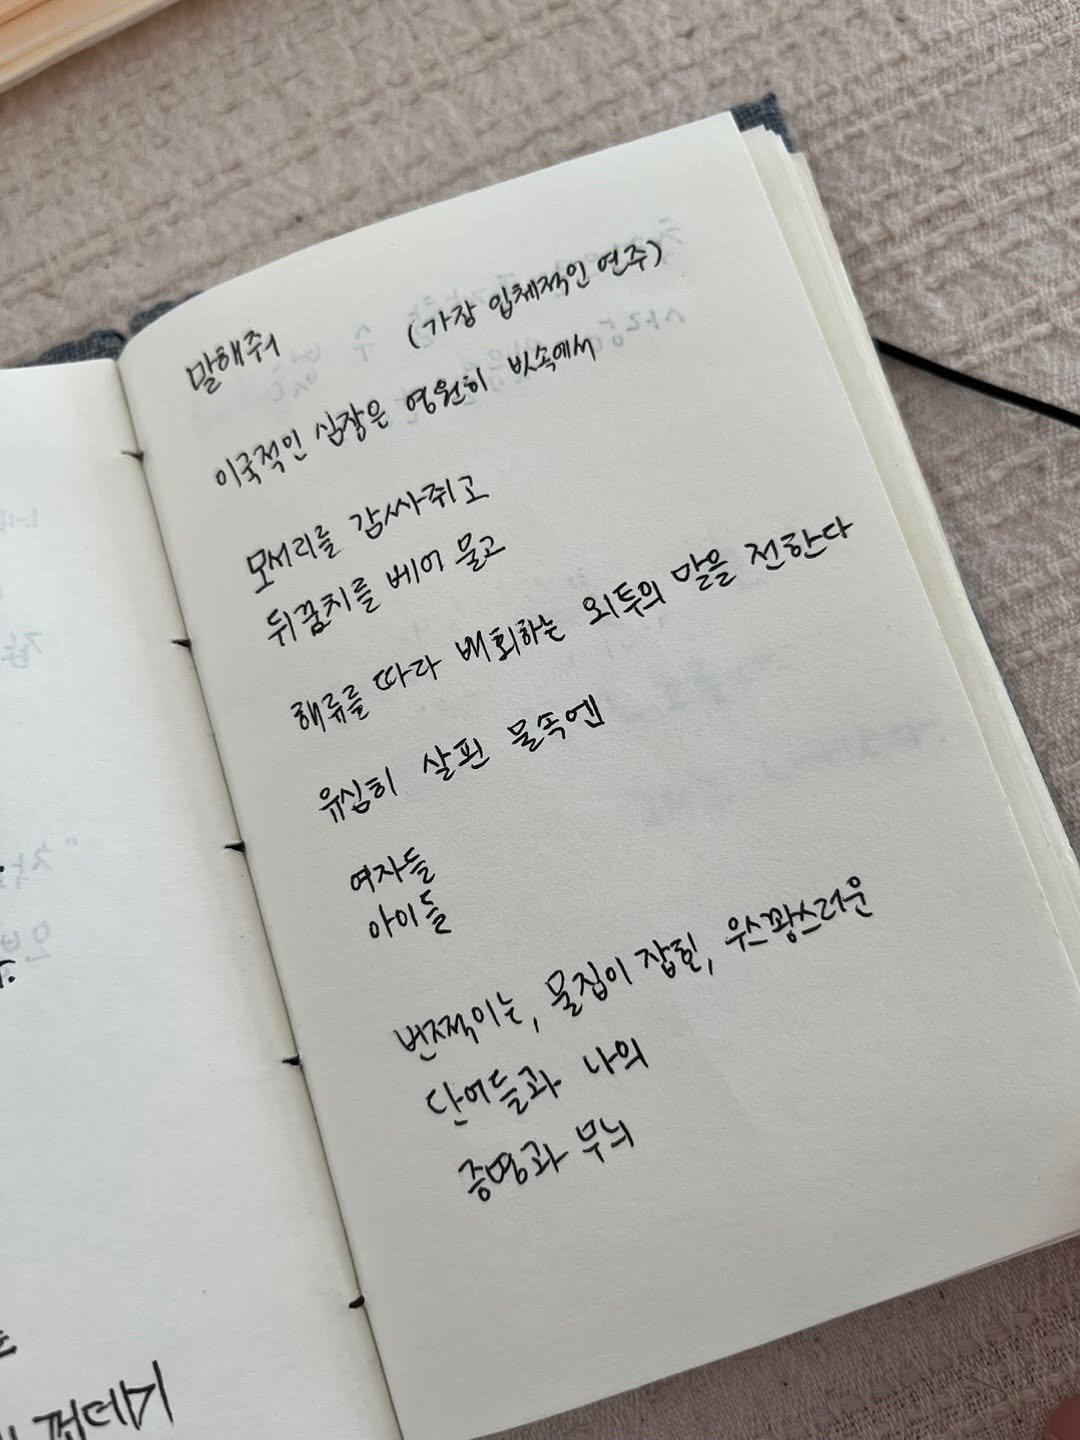 껍데기
말해줘 (가장 입체적인 연주)
이국적인 심장은 영원히 빗속에서
모서리를 감싸쥐고
뒤꿈치를 베어 물고
해류를 따라 배회하는 외투의 말을 전한다
유심히 살핀 물속엔
여자들
아이들
번쩍이는, 물집이 잡힌, 우스꽝스러운
단어들과 나의
증명과 무늬